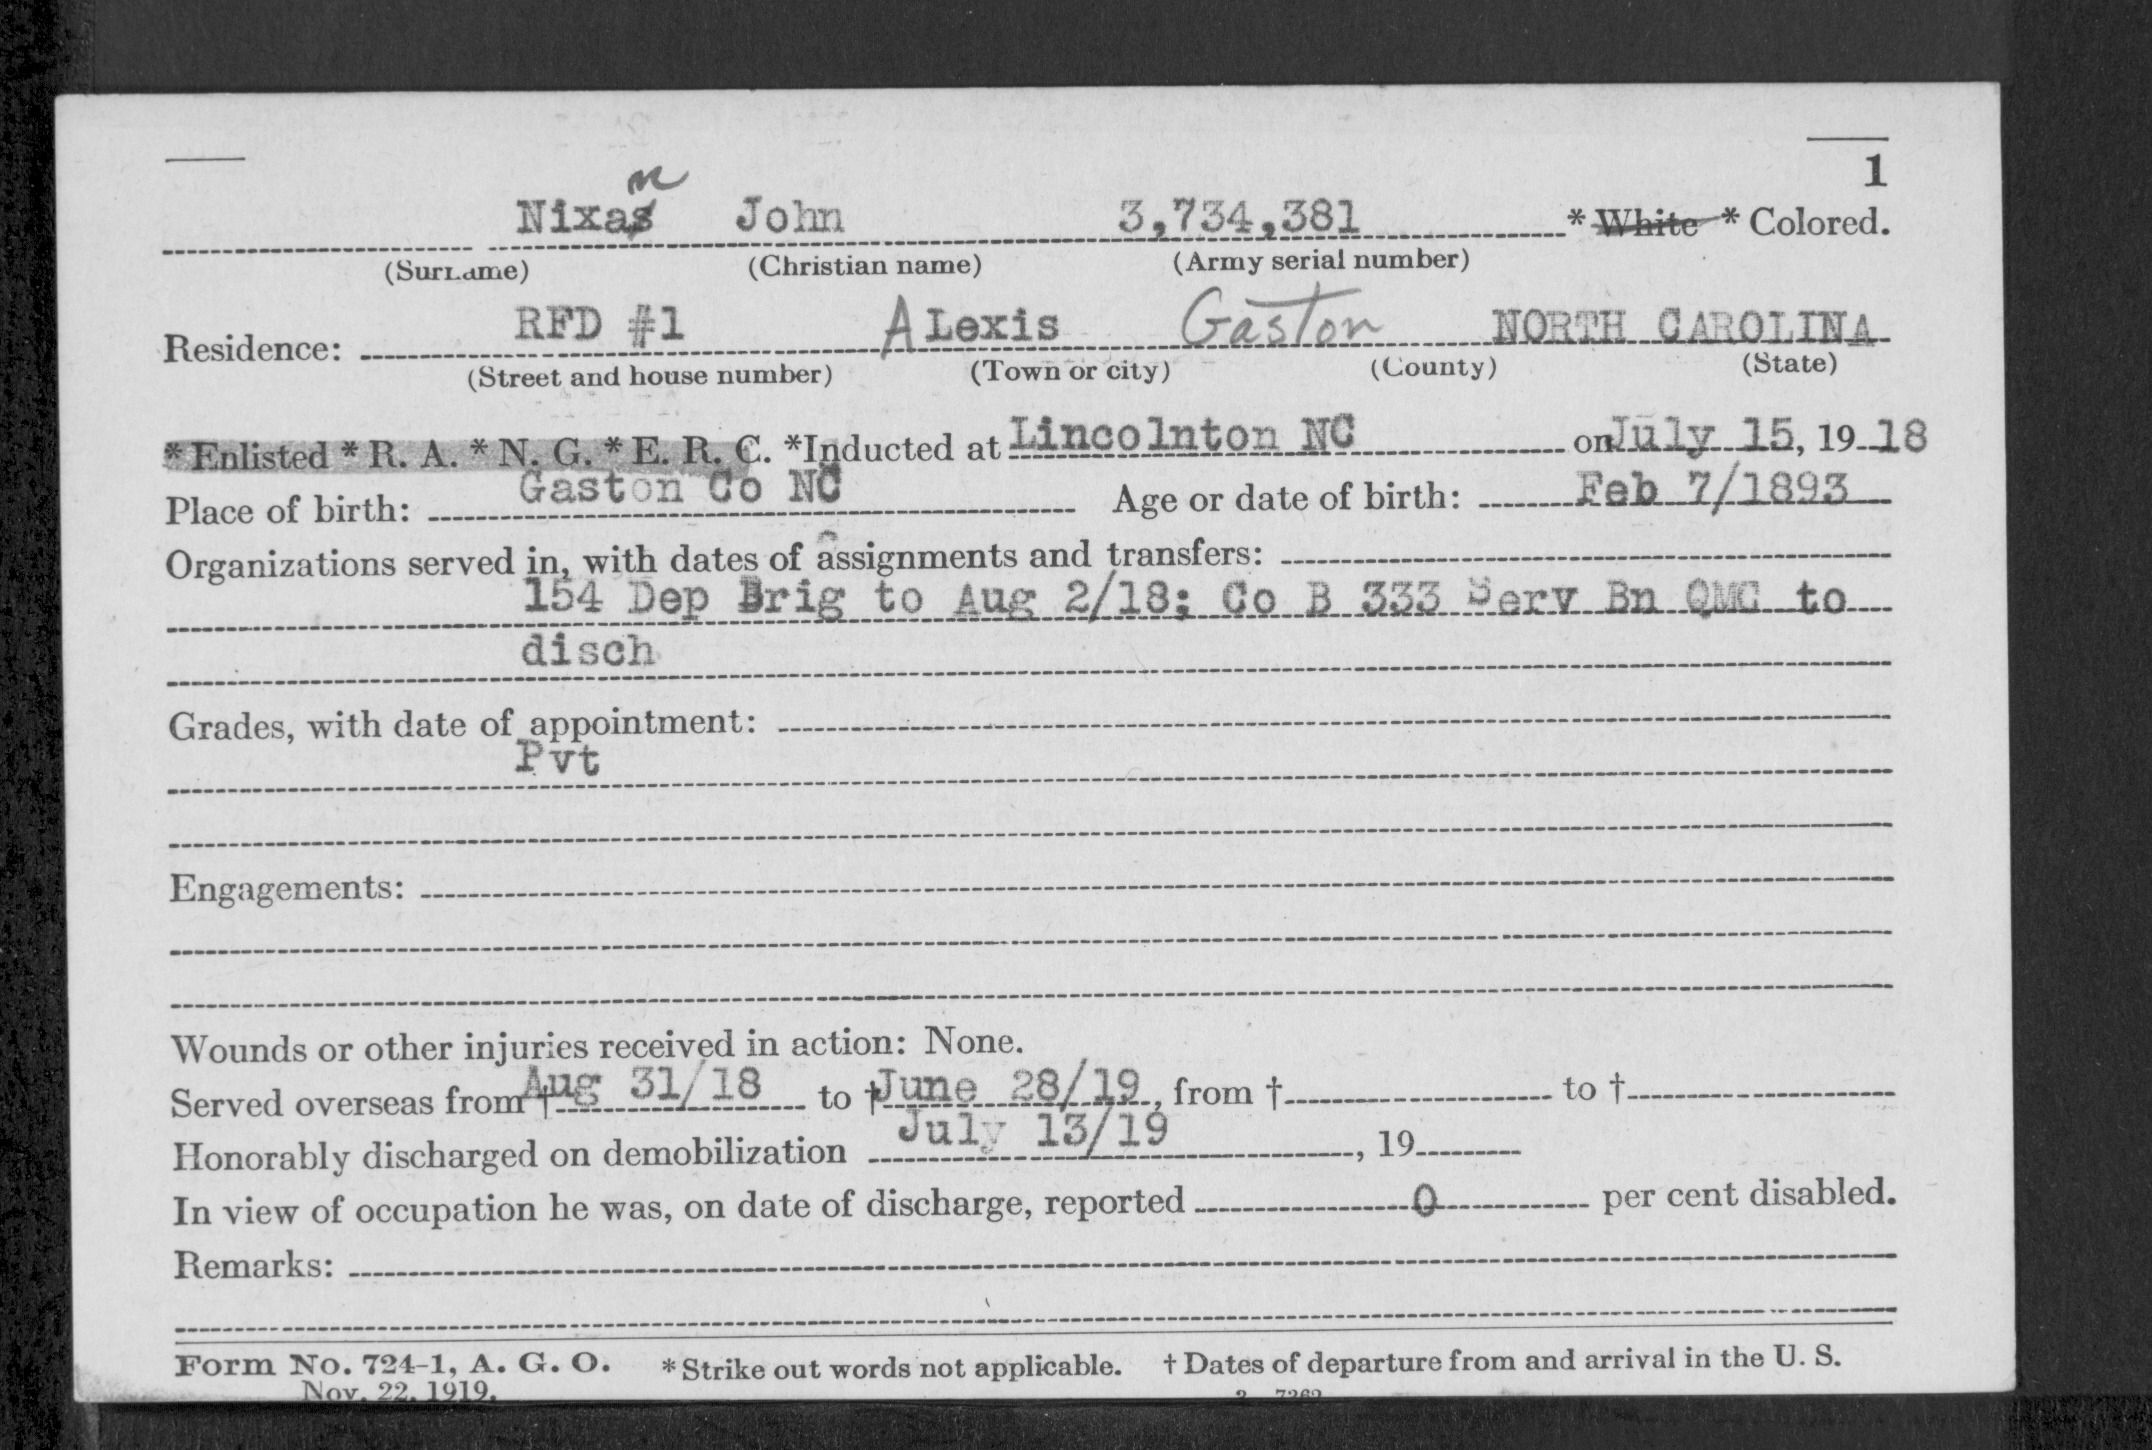 1
n
Nixas John 3,734,381 * White * Colored.
(Surname) (Christian name) (Army serial number)
Residence: RFD #1 ALexis Gaston NORTH CAROLINA
(Street and house number) (Town or city) (County) (State)
* Enlisted * R. A. * N. G. * E. R. C. *Inducted at Lincolnton NC on July 15, 19 18
Place of birth: Gaston Co NC Age or date of birth: Feb 7/1893
Organizations served in, with dates of assignments and transfers:
154 Dep Brig to Aug 2/18; Co B 333 Serv Bn QMC to
disch
Grades, with date of appointment:
Pvt
Engagements:
Wounds or other injuries received in action: None.
Served overseas from † Aug 31/18 to † June 28/19, from † to †
Honorably discharged on demobilization July 13/19, 19
In view of occupation he was, on date of discharge, reported 0 per cent disabled.
Remarks:
Form No. 724-1, A. G. O. * Strike out words not applicable. † Dates of departure from and arrival in the U. S.
Nov. 22, 1919. 3—7262